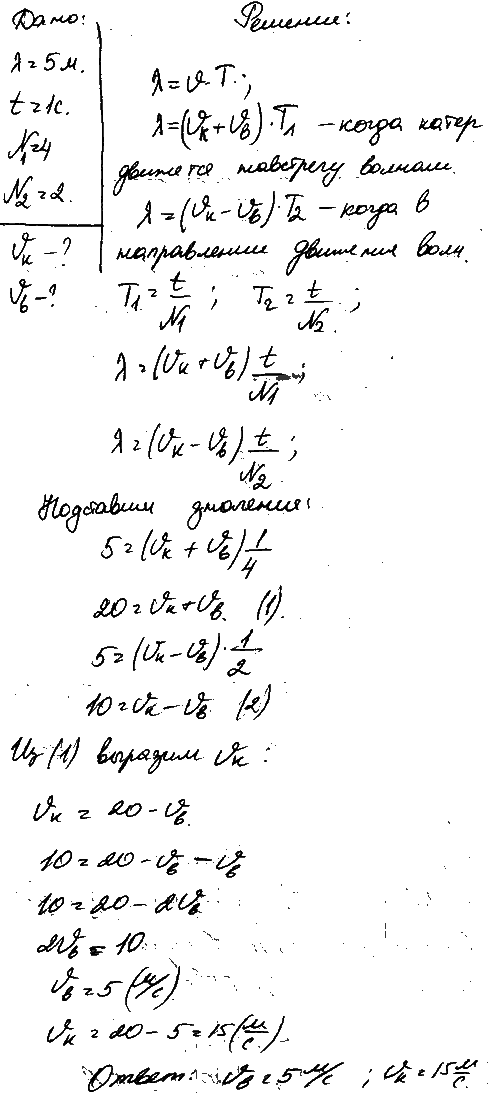 Дано:
λ = 5 м.
t = 1с.
N₁=4
N₂ = 2.
υк – ?
υв – ?
Решение:
λ = υ·T;
λ = (υк + υв)·T₁ – когда катер
движется навстречу волнам.
λ = (υк – υв)·T₂ – когда в
направлении движения волн.
T₁ = t/N₁ ; T₂ = t/N₂ ;
λ = (υк + υв) t/N₁ ;
λ = (υк – υв) t/N₂ ;
Подставим значения:
5 = (υк + υв) 1/4
20 = υк + υв. (1).
5 = (υк – υв)·1/2
10 = υк – υв (2)
Из (1) выразим υк :
υк = 20 – υв.
10 = 20 – υв – υв
10 = 20 – 2υв
2υв = 10
υв = 5 (м/с)
υк = 20 – 5 = 15 (м/с).
Ответ: υв = 5 м/с ; υк = 15 м/с